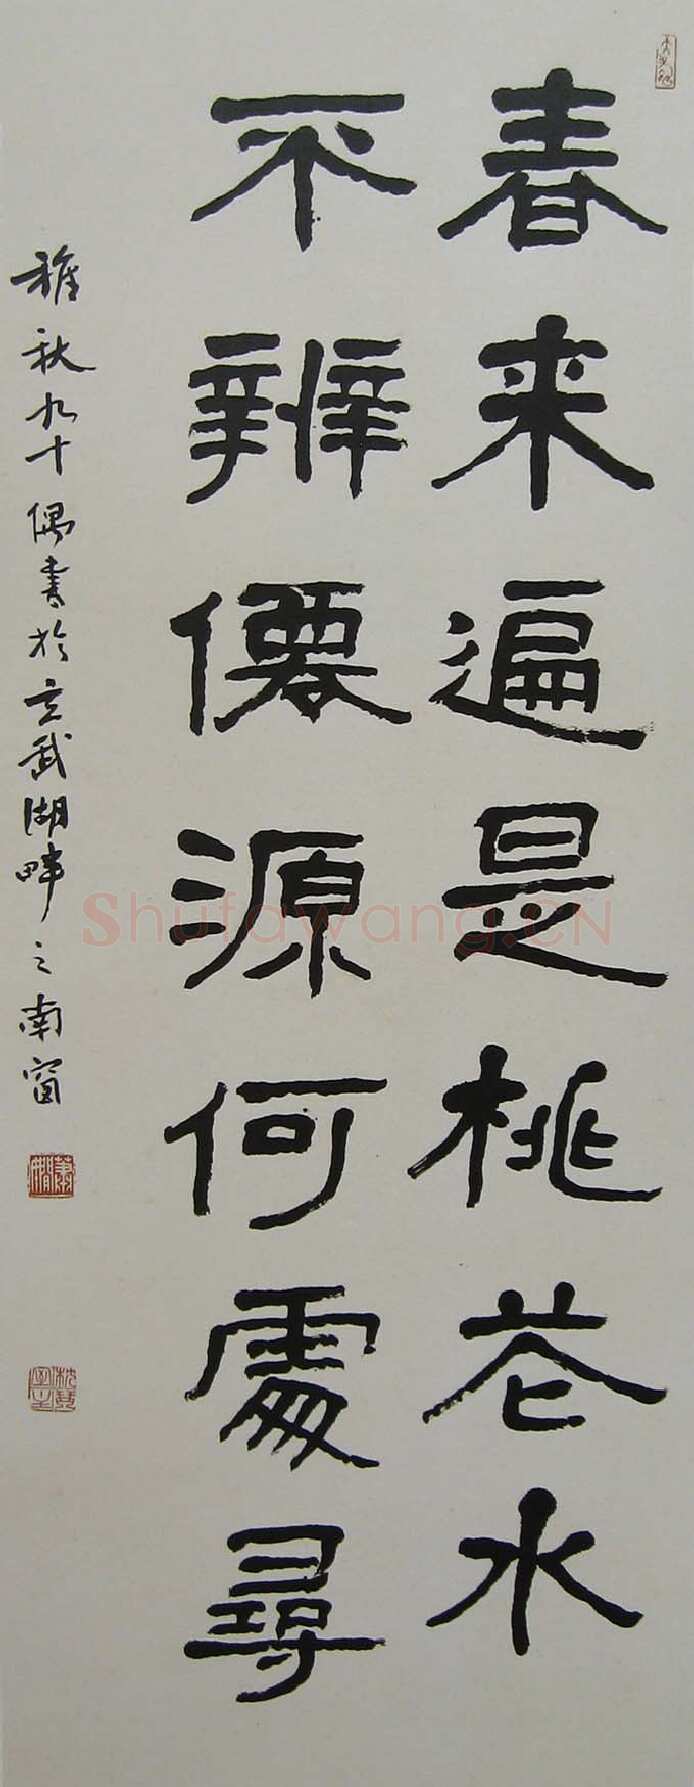 春来遍是桃花水
不辨僊源何處尋
稚秋九十偶書於玄武湖畔之南窗
Shufawang.CN